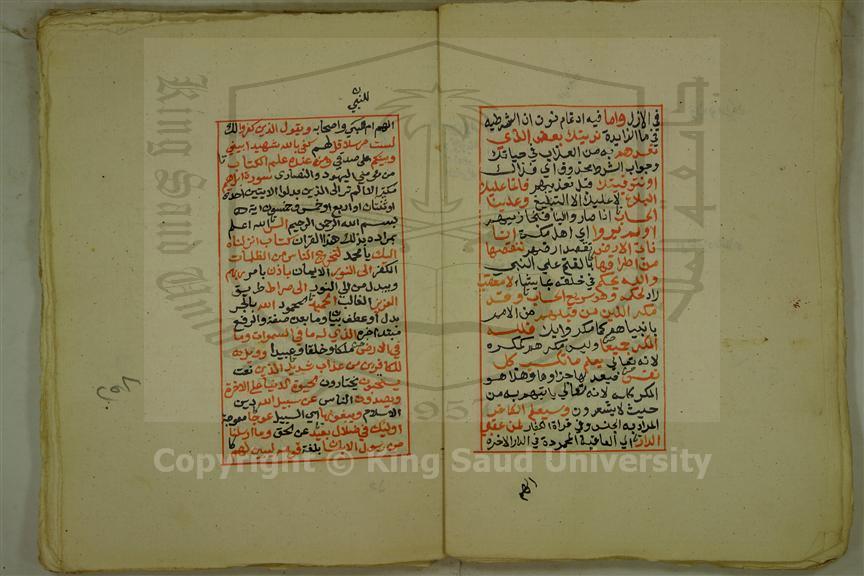 في الازل واما فيه ادغام نون ان الشرطية
في ما الزايدة نرينك بعض الذي
نعدهم به من العذاب في حياتك
وجواب الشرط محذوف اي فذاك
او نتوفينك قبل تعذيبهم فانما عليك
البلاغ لا عليك الا التبليغ وعلينا
الحساب اذا صاروا الينا فنجازيهم
اولم يروا اي اهل مكة انا
ناتي الارض نقصد ارضهم ننقصها
من اطرافها بالفتح على النبي
والله يحكم في خلقه بما يشاء لا معقب
راد لحكمه وهو سريع الحساب وقد
مكر الذين من قبلهم من الامم
بانبيائهم كما مكروا بك فلله
المكر جميعا وليس مكرهم كمكره
لانه تعالى يعلم ما تكسب كل
نفس فيعد لها جزاءه وهذا هو
المكر كله لانه تعالى ياتيهم به من
حيث لا يشعرون وسيعلم الكافر
المراد به الجنس وفي قراءة الكفار لمن عقبى
الدار اي العاقبة المحمودة في الدار الاخرة
الهم
للنبي
الهم ام للنبي واصحابه ويقول الذين كفروا لك
لست مرسلا قل لهم كفى بالله شهيدا بيني
وبينكم على صدقي ومن عنده علم الكتاب
من مومني اليهود والنصارى سورة ابراهيم
مكية الا الم تر الى الذين بدلوا الايتين احدى
او ثنتان او اربع او خمس وخمسون اية
بسم الله الرحمن الرحيم الر الله اعلم
بمراده بذلك هذا القران كتاب انزلناه
اليك يا محمد لتخرج الناس من الظلمات
الكفر الى النور الايمان باذن بامر ربهم
ويبدل من الى النور الى صراط طريق
العزيز الغالب الحميد المحمود الله بالجر
بدل او عطف بيان وما بعده صفة والرفع
مبتدا خبره الذي له ما في السموات وما
في الارض ملكا وخلقا وعبيدا وويل
للكافرين من عذاب شديد الذين نعت
يستحبون يختارون الحيوة الدنيا على الاخرة
ويصدون الناس عن سبيل الله دين
الاسلام ويبغونها اي السبيل عوجا معوجة
اوليك في ضلال بعيد عن الحق وما ارسلنا
من رسول الا بلسان بلغة قومه ليبين لهم
Copyright © King Saud University
King Saud University
جامعة الملك سعود
1957